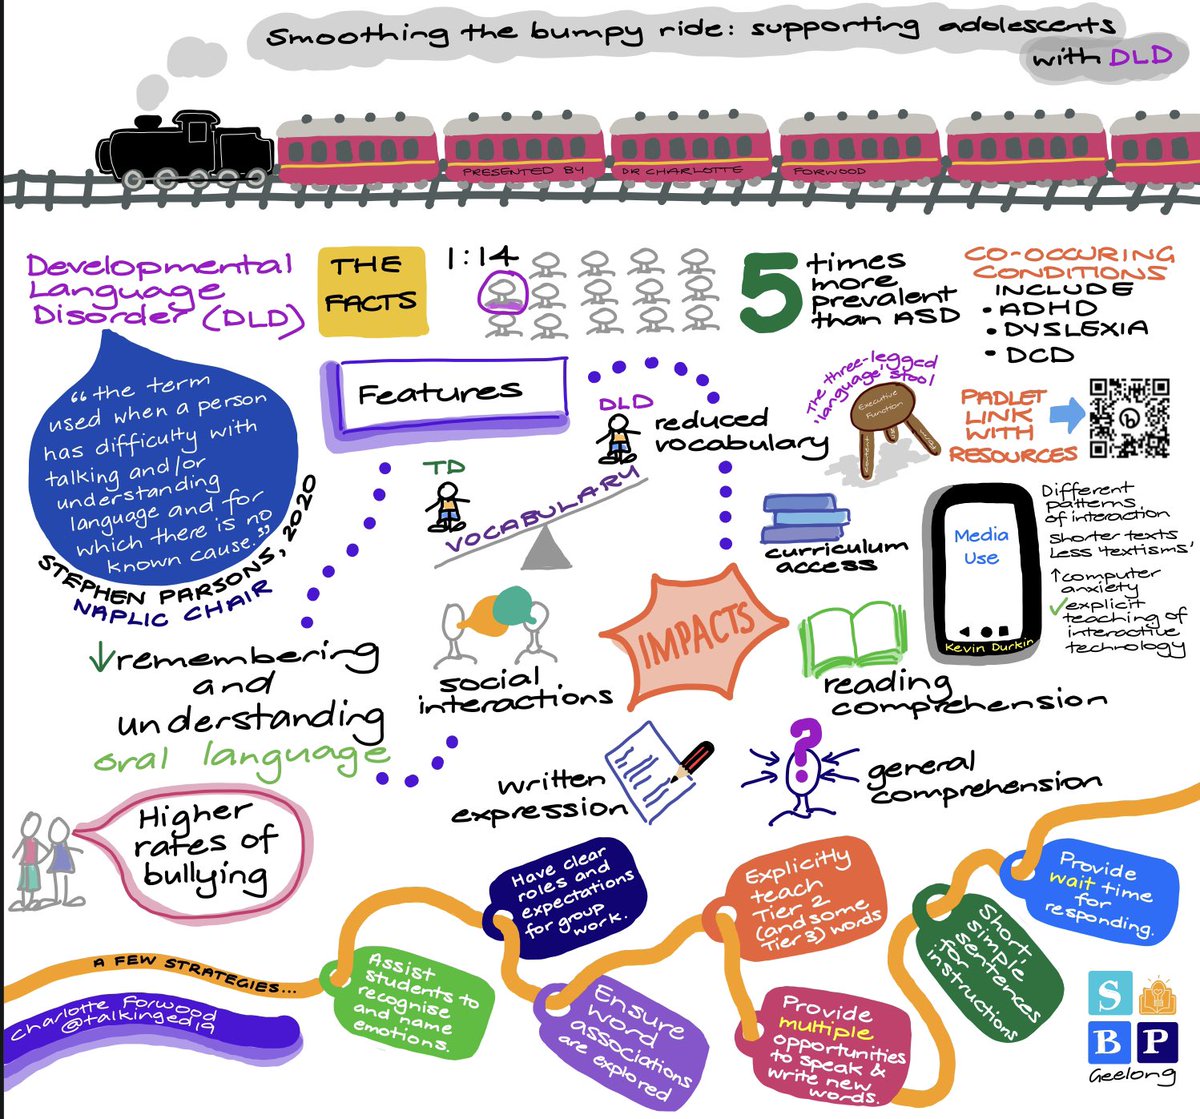 Smoothing the bumpy ride: supporting adolescents
with DLD
PRESENTED BY
DR CHARLOTTE
FORWOOD
Developmental
Language
Disorder (DLD)
THE
FACTS
1:14
5
times
more
prevalent
than ASD
CO-OCCURING
CONDITIONS
INCLUDE
• ADHD
• DYSLEXIA
• DCD
"the term
used when a person
has difficulty with
talking and/or
understanding
language and for
which there is no
known cause."
STEPHEN PARSONS, 2020
NAPLIC CHAIR
Features
DLD
reduced
vocabulary
TD
VOCABULARY
The three-legged
'language' stool
Executive
Function
PADLET
LINK
WITH
RESOURCES
curriculum
access
Media
Use
Kevin Durkin
Different
patterns
of interaction
Shorter texts
Less 'textisms'
↑computer
anxiety
✓explicit
teaching of
interactive
technology
↓remembering
and
understanding
oral language
social
interactions
IMPACTS
reading
comprehension
written
expression
?
general
comprehension
Higher
rates of
bullying
A FEW STRATEGIES...
Charlotte Forwood
@talkinged19
Assist
students to
recognise
and name
emotions.
Have clear
roles and
expectations
for group
work.
Ensure
word
associations
are explored
Explicitly
teach
Tier 2
(and some
Tier 3) words
Provide
multiple
opportunities
to speak &
write new
words.
Short,
simple
sentences
for
instructions
Provide
wait time
for
responding.
S
B P
Geelong